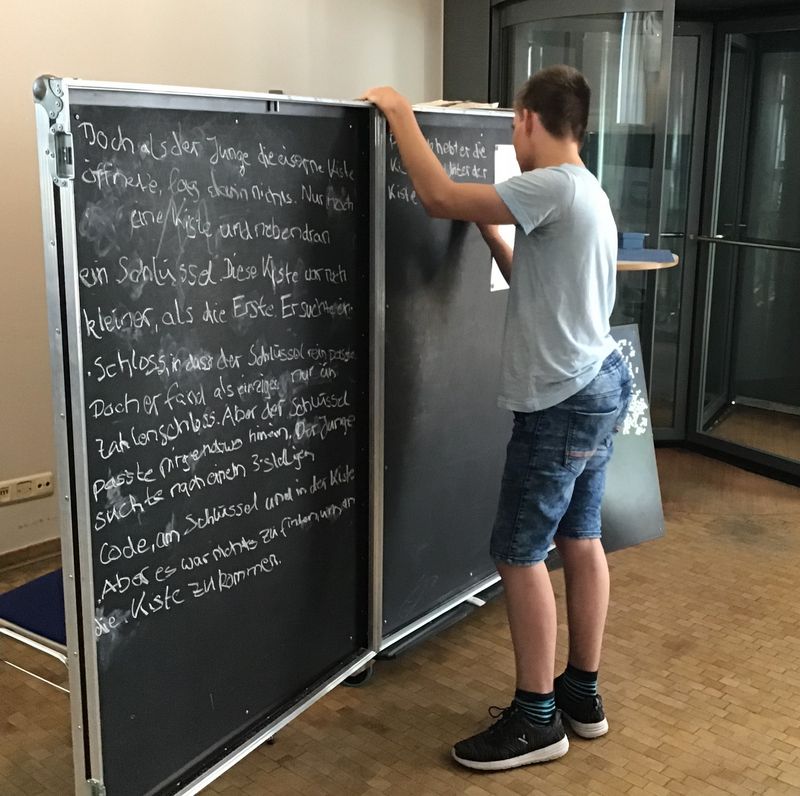 Doch als der Junge die eiserne Kiste
öffnete, fand er darin nichts. Nur noch
eine Kiste und nebendran
ein Schlüssel. Diese Kiste war noch
kleiner, als die Erste. Er suchte ein
Schloss, in dass der Schlüssel rein passte.
Doch er fand als einziges nur an
Zahlenschloss. Aber der Schlüssel
passte nirgendswo hinein. Der Junge
suchte nach einem 3 stelligen
Code, am Schlüssel und in der Kiste
. Aber es war nichts zu finden, um an
die Kiste zu kommen.
hebt er die
hinter der
Kiste